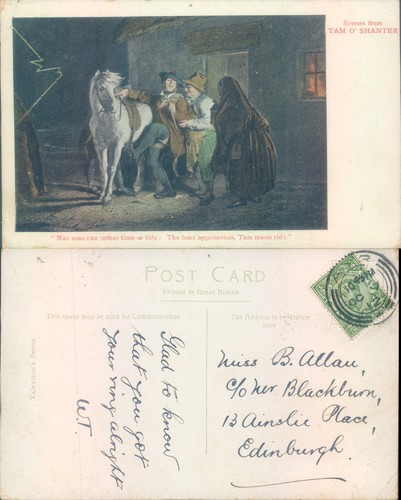 Scenes from
TAM O' SHANTER
"Nae man can tether time or tide; The hour approaches, Tam maun ride."
POST CARD
Printed in Great Britain
This space may be used for Communication
The Address to be written
here
Valentine's Series
Glad to know
that you got
your ring alright
W.T.
Miss B. Allan,
c/o Mer Blackburn,
13 Ainslie Place,
Edinburgh.